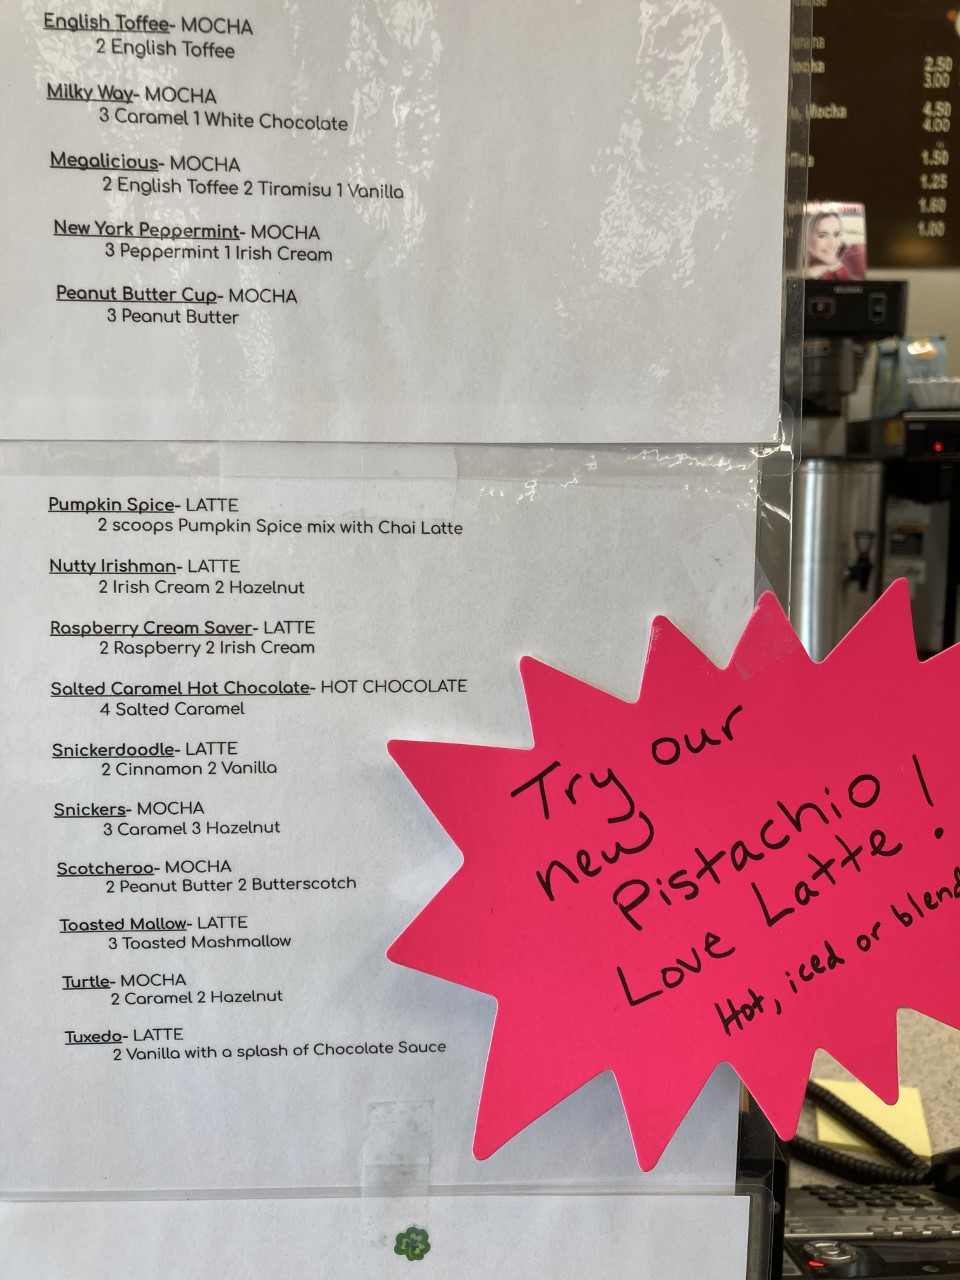 English Toffee- MOCHA
2 English Toffee
Milky Way- MOCHA
3 Caramel 1 White Chocolate
Megalicious- MOCHA
2 English Toffee 2 Tiramisu 1 Vanilla
New York Peppermint- MOCHA
3 Peppermint 1 Irish Cream
Peanut Butter Cup- MOCHA
3 Peanut Butter
Pumpkin Spice- LATTE
2 scoops Pumpkin Spice mix with Chai Latte
Nutty Irishman- LATTE
2 Irish Cream 2 Hazelnut
Raspberry Cream Saver- LATTE
2 Raspberry 2 Irish Cream
Salted Caramel Hot Chocolate- HOT CHOCOLATE
4 Salted Caramel
Snickerdoodle- LATTE
2 Cinnamon 2 Vanilla
Snickers- MOCHA
3 Caramel 3 Hazelnut
Scotcheroo- MOCHA
2 Peanut Butter 2 Butterscotch
Toasted Mallow- LATTE
3 Toasted Mashmallow
Turtle- MOCHA
2 Caramel 2 Hazelnut
Tuxedo- LATTE
2 Vanilla with a splash of Chocolate Sauce
Try our
new
Pistachio!
Love Latte
Hot, iced or blend
2.50
3.00
Mocha 4.50
4.00
1.50
1.25
1.60
1.00